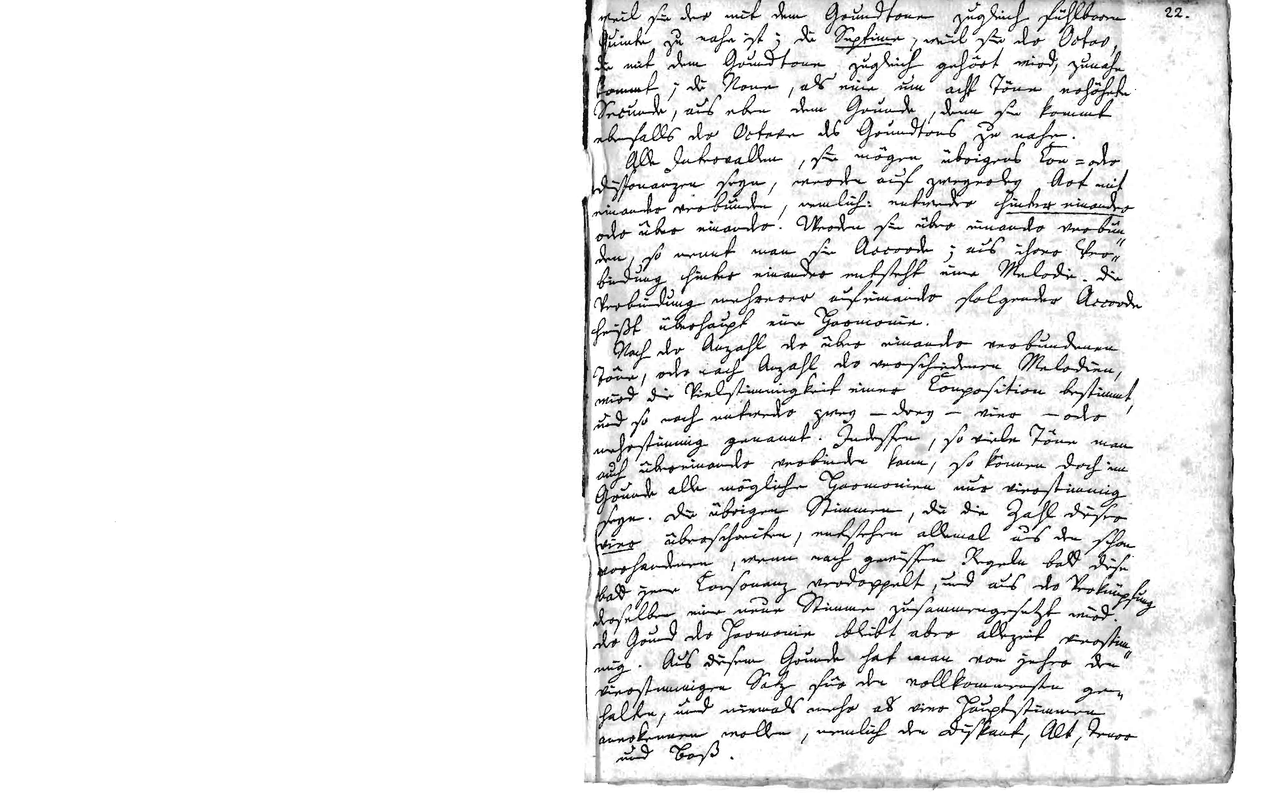 22.
weil sie der mit dem Grundtone zugleich fühlbaren
Quinte zu nahe ist; die Septime, weil sie der Octav,
die mit dem Grundtone zugleich gehört wird, zunahe
kommt; die None, als eine um acht Töne erhöhete
Secunde, aus eben dem Grunde, denn sie kommt
ebenfalls der Octave des Grundtons zu nahe.
Alle Intervallen, sie mögen übrigens Con= oder
dissonanzen seyn, werden auf zweyerley Art mit
einander verbunden, nemlich: entweder hinter einander
oder über einander. Werden sie über einander verbun„
den, so nennt man sie Accorde; aus ihrer Ver„
bindung hinter einander entsteht eine Melodie. Die
Verbindung mehrerer aufeinander folgender Accorde
heißt überhaupt eine Harmonie.
Nach der Anzahl der über einander verbundenen
Töne, oder nach Anzahl der verschiedenen Melodien,
wird die Vielstimmigkeit einer Composition bestimmt,
und so nach entweder zwey – drey – vier – oder
mehrstimmig genannt. Indessen, so viele Töne man
auch übereinander verbinden kann, so können doch im
Grunde alle mögliche Harmonien nur vierstimmig
seyn. Die übrigen Stimmen, die die Zahl dieser
vier überschreiten, entstehen allemal aus den schon
vorhandenen, wenn nach gewissen Regeln bald diese
bald jene Consonanz verdoppelt, und aus der Verknüpfung
derselben eine neue Stimme zusammengesetzt wird.
der Grund der Harmonie bleibt aber allezeit vierstim„
mig. Aus diesem Grunde hat man von jeher den
vierstimmigen Satz für den vollkommensten ge„
halten, und niemals mehr als vier Hauptstimmen
anerkennen wollen, nemlich den Diskant, Alt, Tenor
und Baß.